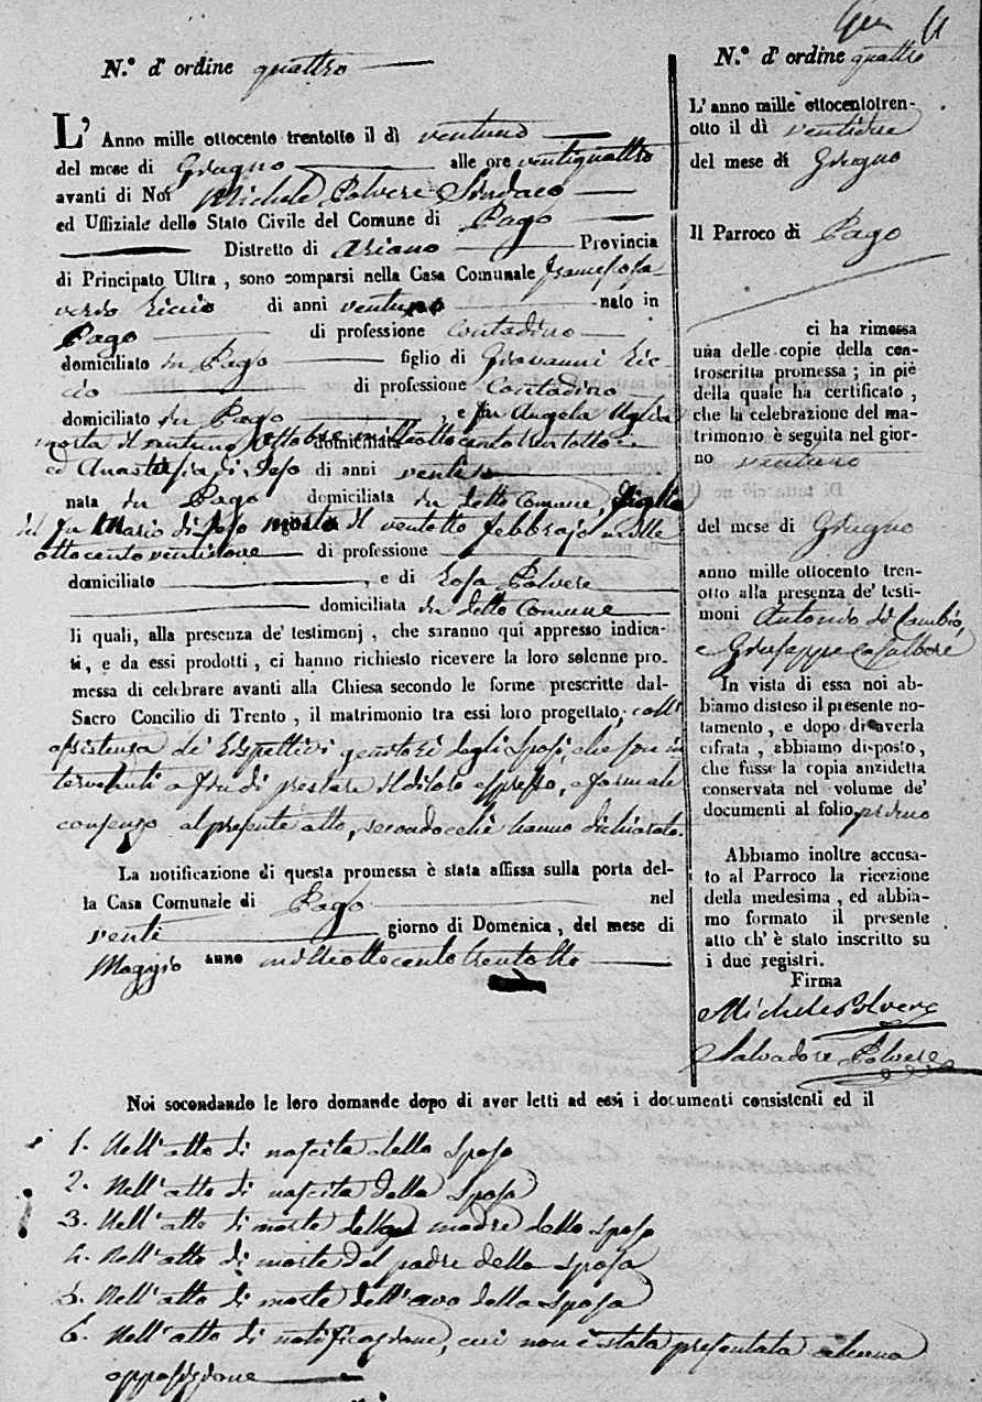 N.° d' ordine quattro
L' Anno mille ottocento trentotto il dì ventuno
del mese di Giugno alle ore ventiquattro
avanti di Noi Michele Polvere Sindaco
ed Uffiziale dello Stato Civile del Comune di Pago
Distretto di Ariano Provincia
di Principato Ultra, sono comparsi nella Casa Comunale Francesosa-
verio Riccio di anni ventuno nato in
Pago di professione Contadino
domiciliato in Pago figlio di Giovanni Ric-
cio di professione Contadino
domiciliato in Pago, e fu Angela
morta il ventuno Ottobre milleottocentotrentotto
ed Anastasia di Jeso di anni
nata in Pago domiciliata in detto Comune, figlia
del fu Mario di Jeso morto il ventotto febbrajo mille
ottocento ventinove di professione
domiciliato , e di Rosa Polvere
domiciliata in detto Comune
li quali, alla presenza de' testimonj, che saranno qui appresso indica-
ti, e da essi prodotti, ci hanno richiesto ricevere la loro solenne pro-
messa di celebrare avanti alla Chiesa secondo le forme prescritte dal-
Sacro Concilio di Trento, il matrimonio tra essi loro progettato; coll'
assistenza de' rispettivi genitori degli sposi, che son in
tervenuti a fin di prestare il di loro espresso, e formale
consenzo al presente atto, secondocchè hanno dichiarato.
La notificazione di questa promessa è stata affissa sulla porta del-
la Casa Comunale di Pago nel
venti giorno di Domenica, del mese di
Maggio anno milleottocentotrentotto
N.° d' ordine quattro
L' anno mille ottocentotren-
otto il dì ventidue
del mese di Giugno
Il Parroco di Pago
ci ha rimessa
una delle copie della con-
troscritta promessa; in piè
della quale ha certificato,
che la celebrazione del ma-
trimonio è seguita nel gior-
no ventuno
del mese di Giugno
anno mille ottocento tren-
otto alla presenza de' testi-
moni Antonio di Cambio,
e Giuseppe Casalbore
In vista di essa noi ab-
biamo disteso il presente no-
tamento, e dopo di averla
cifrata, abbiamo disposto,
che fusse la copia anzidetta
conservata nel volume de'
documenti al folio primo
Abbiamo inoltre accusa-
to al Parroco la ricezione
della medesima, ed abbia-
mo formato il presente
atto ch' è stato inscritto su
i due registri.
Firma
Michele Polvere
Salvadore Polvere
Noi secondando le loro domande dopo di aver letti ad essi i documenti consistenti ed il
1. Nell'atto di nascita dello sposo
2. Nell'atto di nascita della sposa
3. Nell'atto di morte della madre dello sposo
4. Nell'atto di morte del padre della sposa
5. Nell'atto di morte dell'avo della sposa
6. Nell'atto di notificazione, cui non è stata presentata alcuna
opposizione